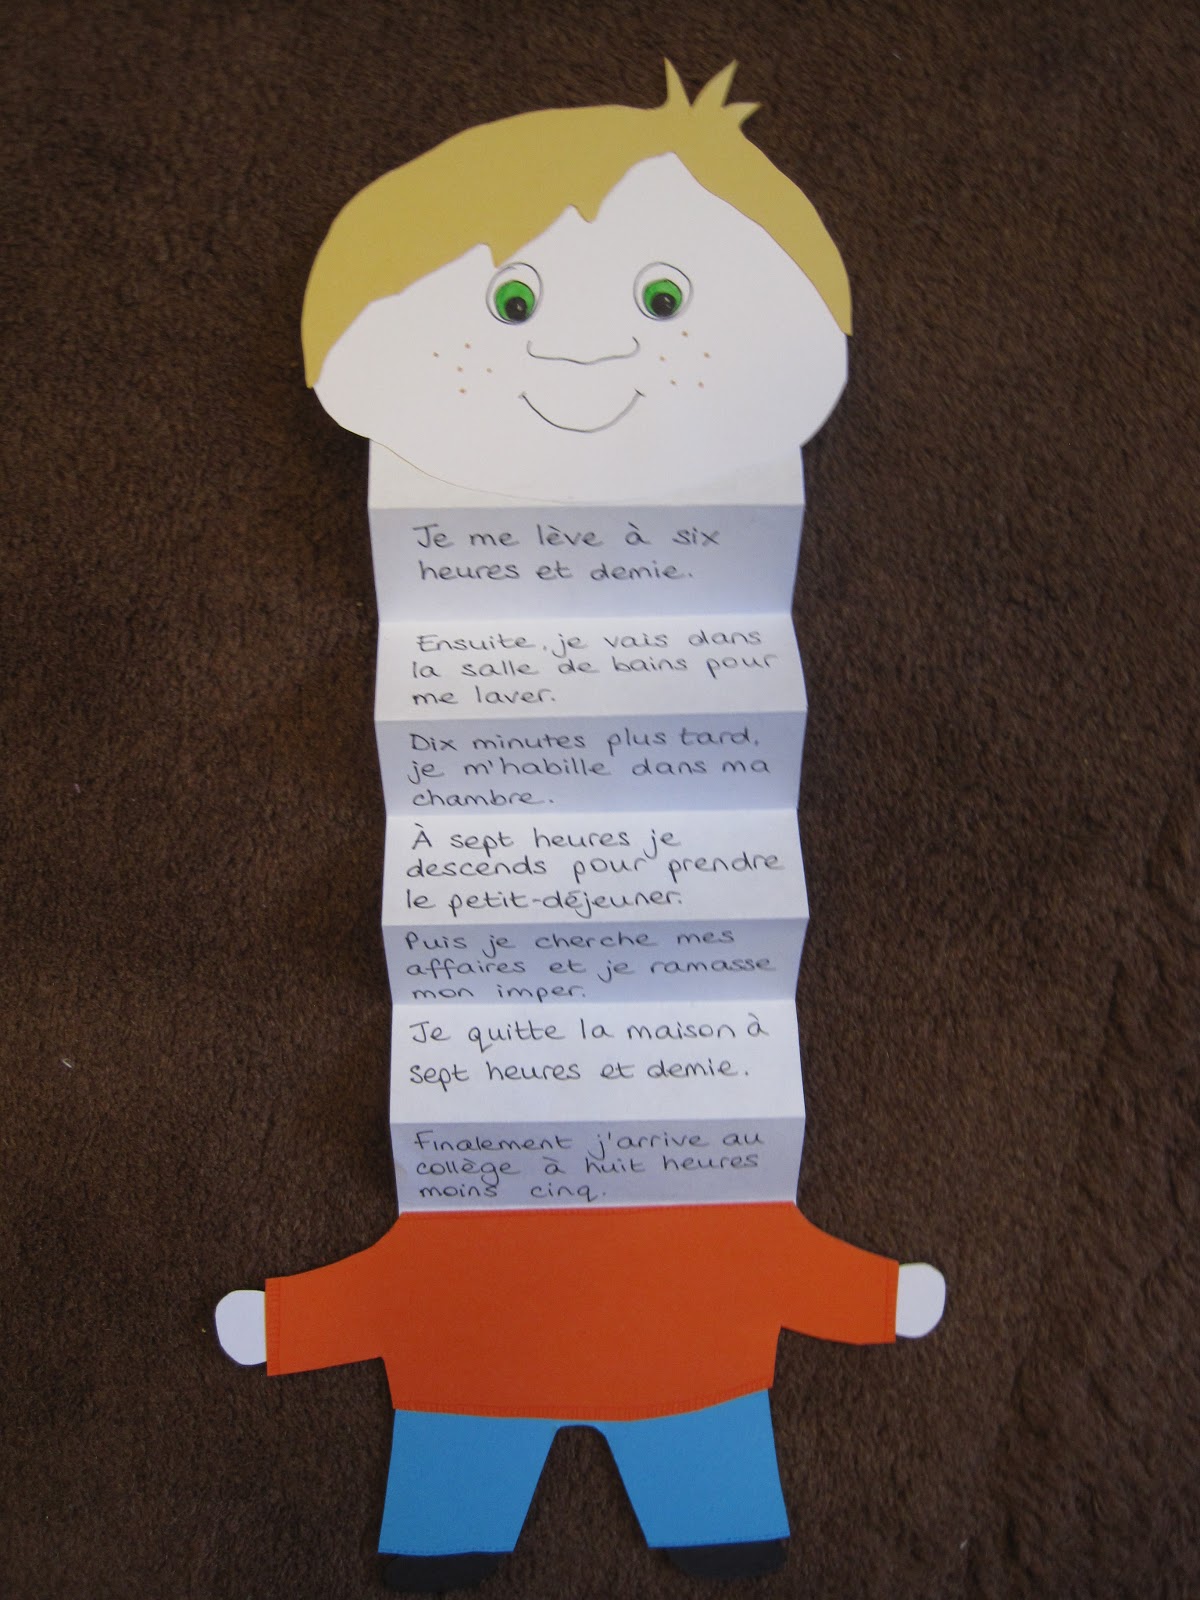 Je me lève à six
heures et demie.
Ensuite, je vais dans
la salle de bains pour
me laver.
Dix minutes plus tard,
je m'habille dans ma
chambre.
À sept heures je
descends pour prendre
le petit-déjeuner.
Puis je cherche mes
affaires et je ramasse
mon imper.
Je quitte la maison à
sept heures et demie.
Finalement j'arrive au
collège à huit heures
moins cinq.